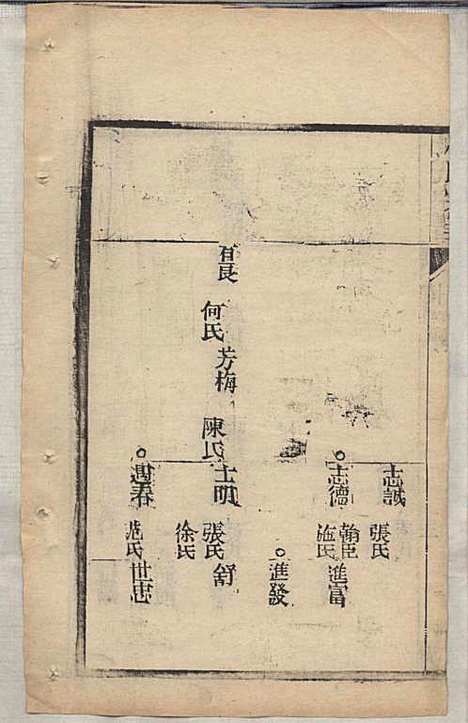 志誠
張氏
志德
翰臣
進富
施氏
進發
芳梅
何氏
陳氏
士明
舒
張氏
徐氏
遇春
世忠
范氏